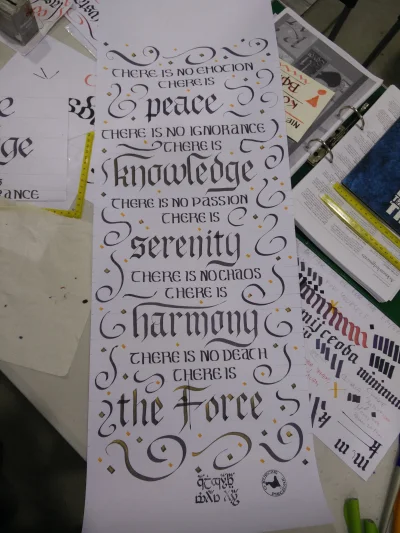 THERE IS NO EMOTION
THERE IS
peace
THERE IS NO IGNORANCE
THERE IS
knowledge
THERE IS NO PASSION
THERE IS
serenity
THERE IS NO CHAOS
THERE IS
harmony
THERE IS NO DEATH
THERE IS
the Force
minimum